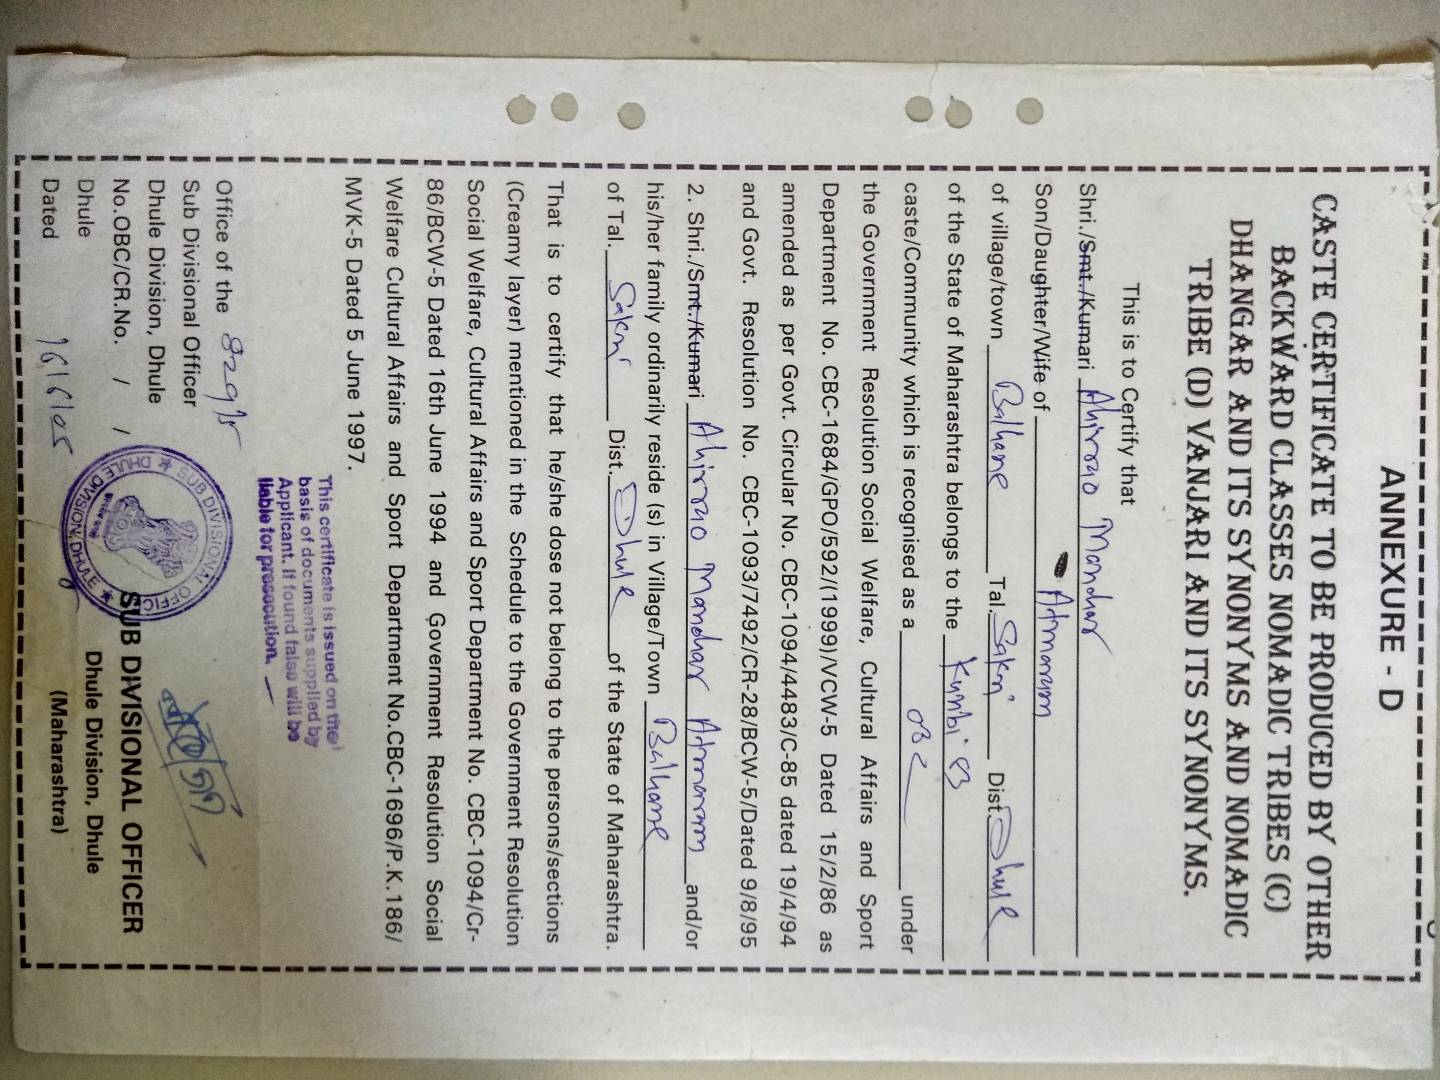 ANNEXURE - D
CASTE CERTIFICATE TO BE PRODUCED BY OTHER
BACKWARD CLASSES NOMADIC TRIBES (C)
DHANGAR AND ITS SYNONYMS AND NOMADIC
TRIBE (D) VANJARI AND ITS SYNONYMS.
This is to Certify that
Shri./Smt./Kumari Ahirrao Manohar
Son/Daughter/Wife of Atmaram
of village/town Balhane Tal. Sakri Dist. Dhule
of the State of Maharashtra belongs to the Kunbi
caste/Community which is recognised as a OBC under
the Government Resolution Social Welfare, Cultural Affairs and Sport
Department No. CBC-1684/GPO/592/(1999)/VCW-5 Dated 15/2/86 as
amended as per Govt. Circular No. CBC-1094/4483/C-85 dated 19/4/94
and Govt. Resolution No. CBC-1093/7492/CR-28/BCW-5/Dated 9/8/95
2. Shri./Smt./Kumari Ahirrao Manohar Atmaram and/or
his/her family ordinarily reside (s) in Village/Town Balhane
of Tal. Sakri Dist. Dhule of the State of Maharashtra.
That is to certify that he/she dose not belong to the persons/sections
(Creamy layer) mentioned in the Schedule to the Government Resolution
Social Welfare, Cultural Affairs and Sport Department No. CBC-1094/Cr-
86/BCW-5 Dated 16th June 1994 and Government Resolution Social
Welfare Cultural Affairs and Sport Department No.CBC-1696/P.K.186/
MVK-5 Dated 5 June 1997.
This certificate is issued on the
basis of documents supplied by
Applicant. If found false will be
liable for prosecution.
Office of the
Sub Divisional Officer
Dhule Division, Dhule
No.OBC/CR.No. / /
Dhule
Dated 16/6/05
SUB DIVISIONAL OFFICER
DHULE DIVISION, DHULE
SUB DIVISIONAL OFFICER
Dhule Division, Dhule
(Maharashtra)